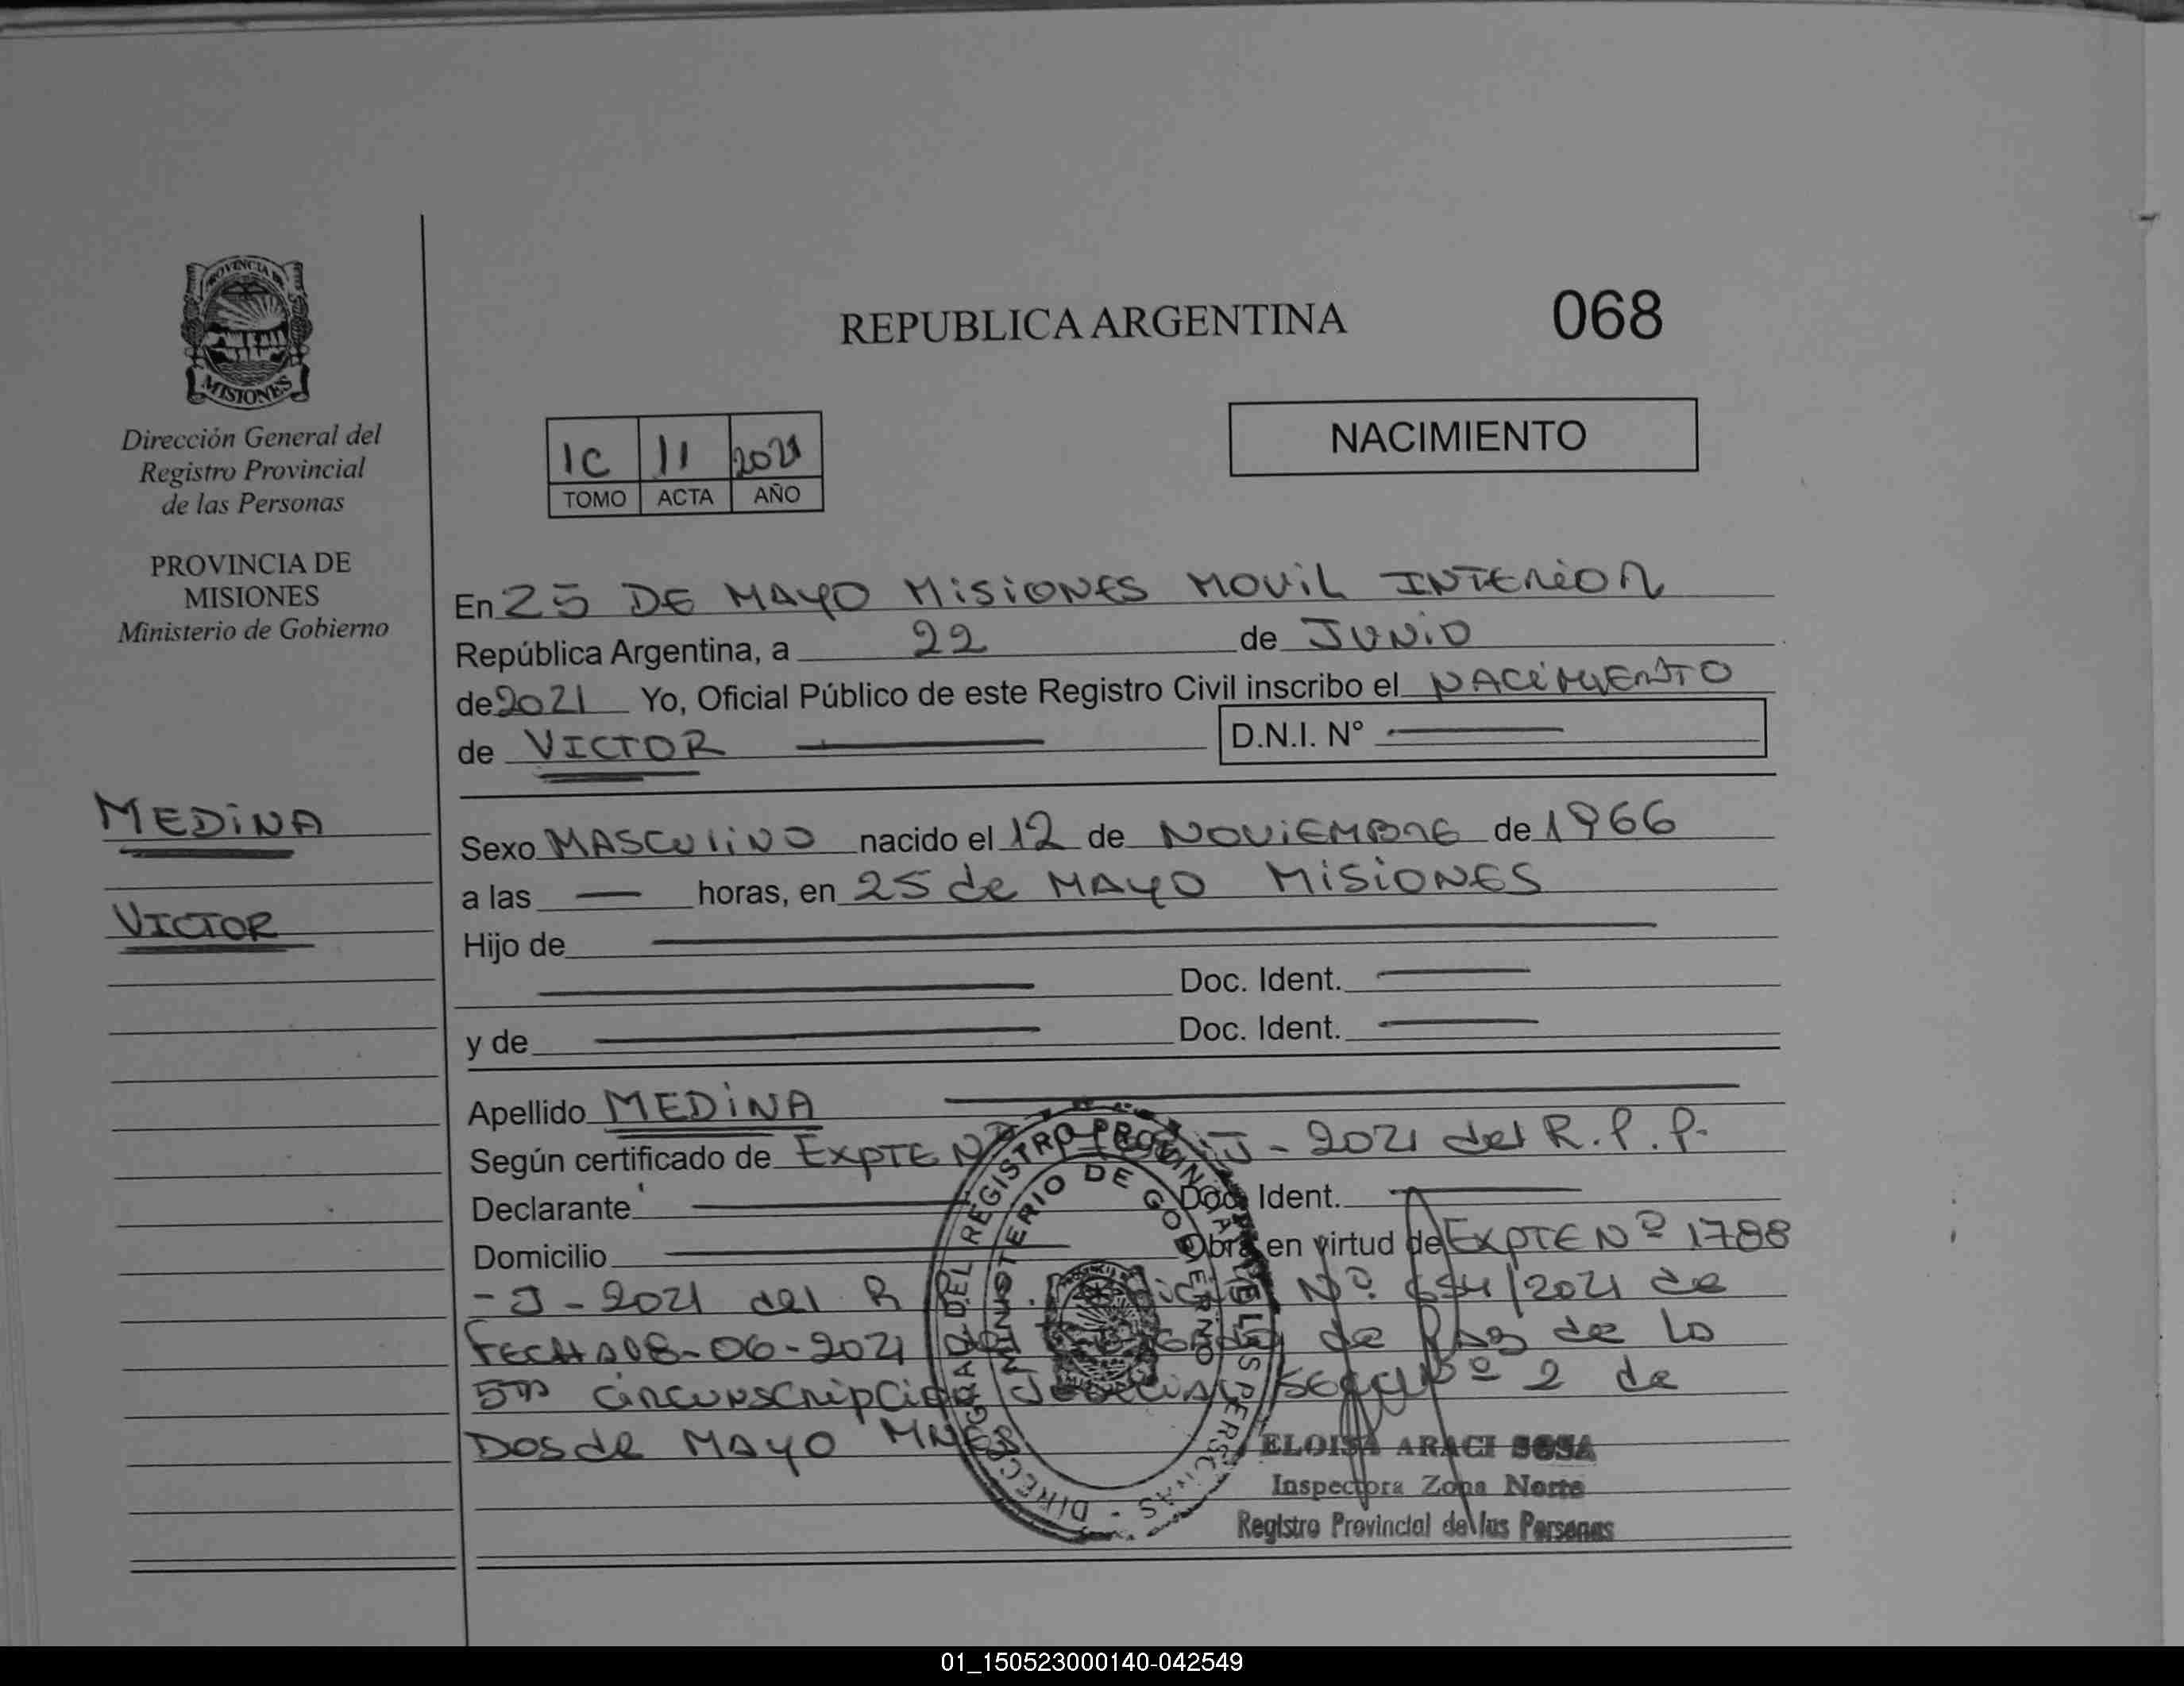 PROVINCIA DE
MISIONES
Dirección General del
Registro Provincial
de las Personas
PROVINCIA DE
MISIONES
Ministerio de Gobierno
MEDINA
VICTOR
REPUBLICA ARGENTINA
068
NACIMIENTO
1C 11 2021
TOMO ACTA AÑO
En 25 DE MAYO MISIONES MOVIL INTERIOR
República Argentina, a 22 de JUNIO
de 2021 Yo, Oficial Público de este Registro Civil inscribo el NACIMIENTO
de VICTOR D.N.I. Nº
Sexo MASCULINO nacido el 12 de NOVIEMBRE de 1966
a las horas, en 25 de MAYO MISIONES
Hijo de
Doc. Ident.
y de Doc. Ident.
Apellido MEDINA
Según certificado de EXPTE J - 2021 del R.P.P.
Declarante Doc. Ident.
Domicilio Obra en virtud de EXPTE Nº 1788
- J - 2021 del R Nº /2021 de
FECHA 08-06-2021 de Paz de la
5ta circunscripción Judicial Nº 2 de
Dos de MAYO MNES
DIRECC GRAL DEL REGISTRO PROVINCIAL DE LAS PERSONAS
MINISTERIO DE GOBIERNO
ELOISA ARACI SOSA
Inspectora Zona Norte
Registro Provincial de las Personas
01_150523000140-042549